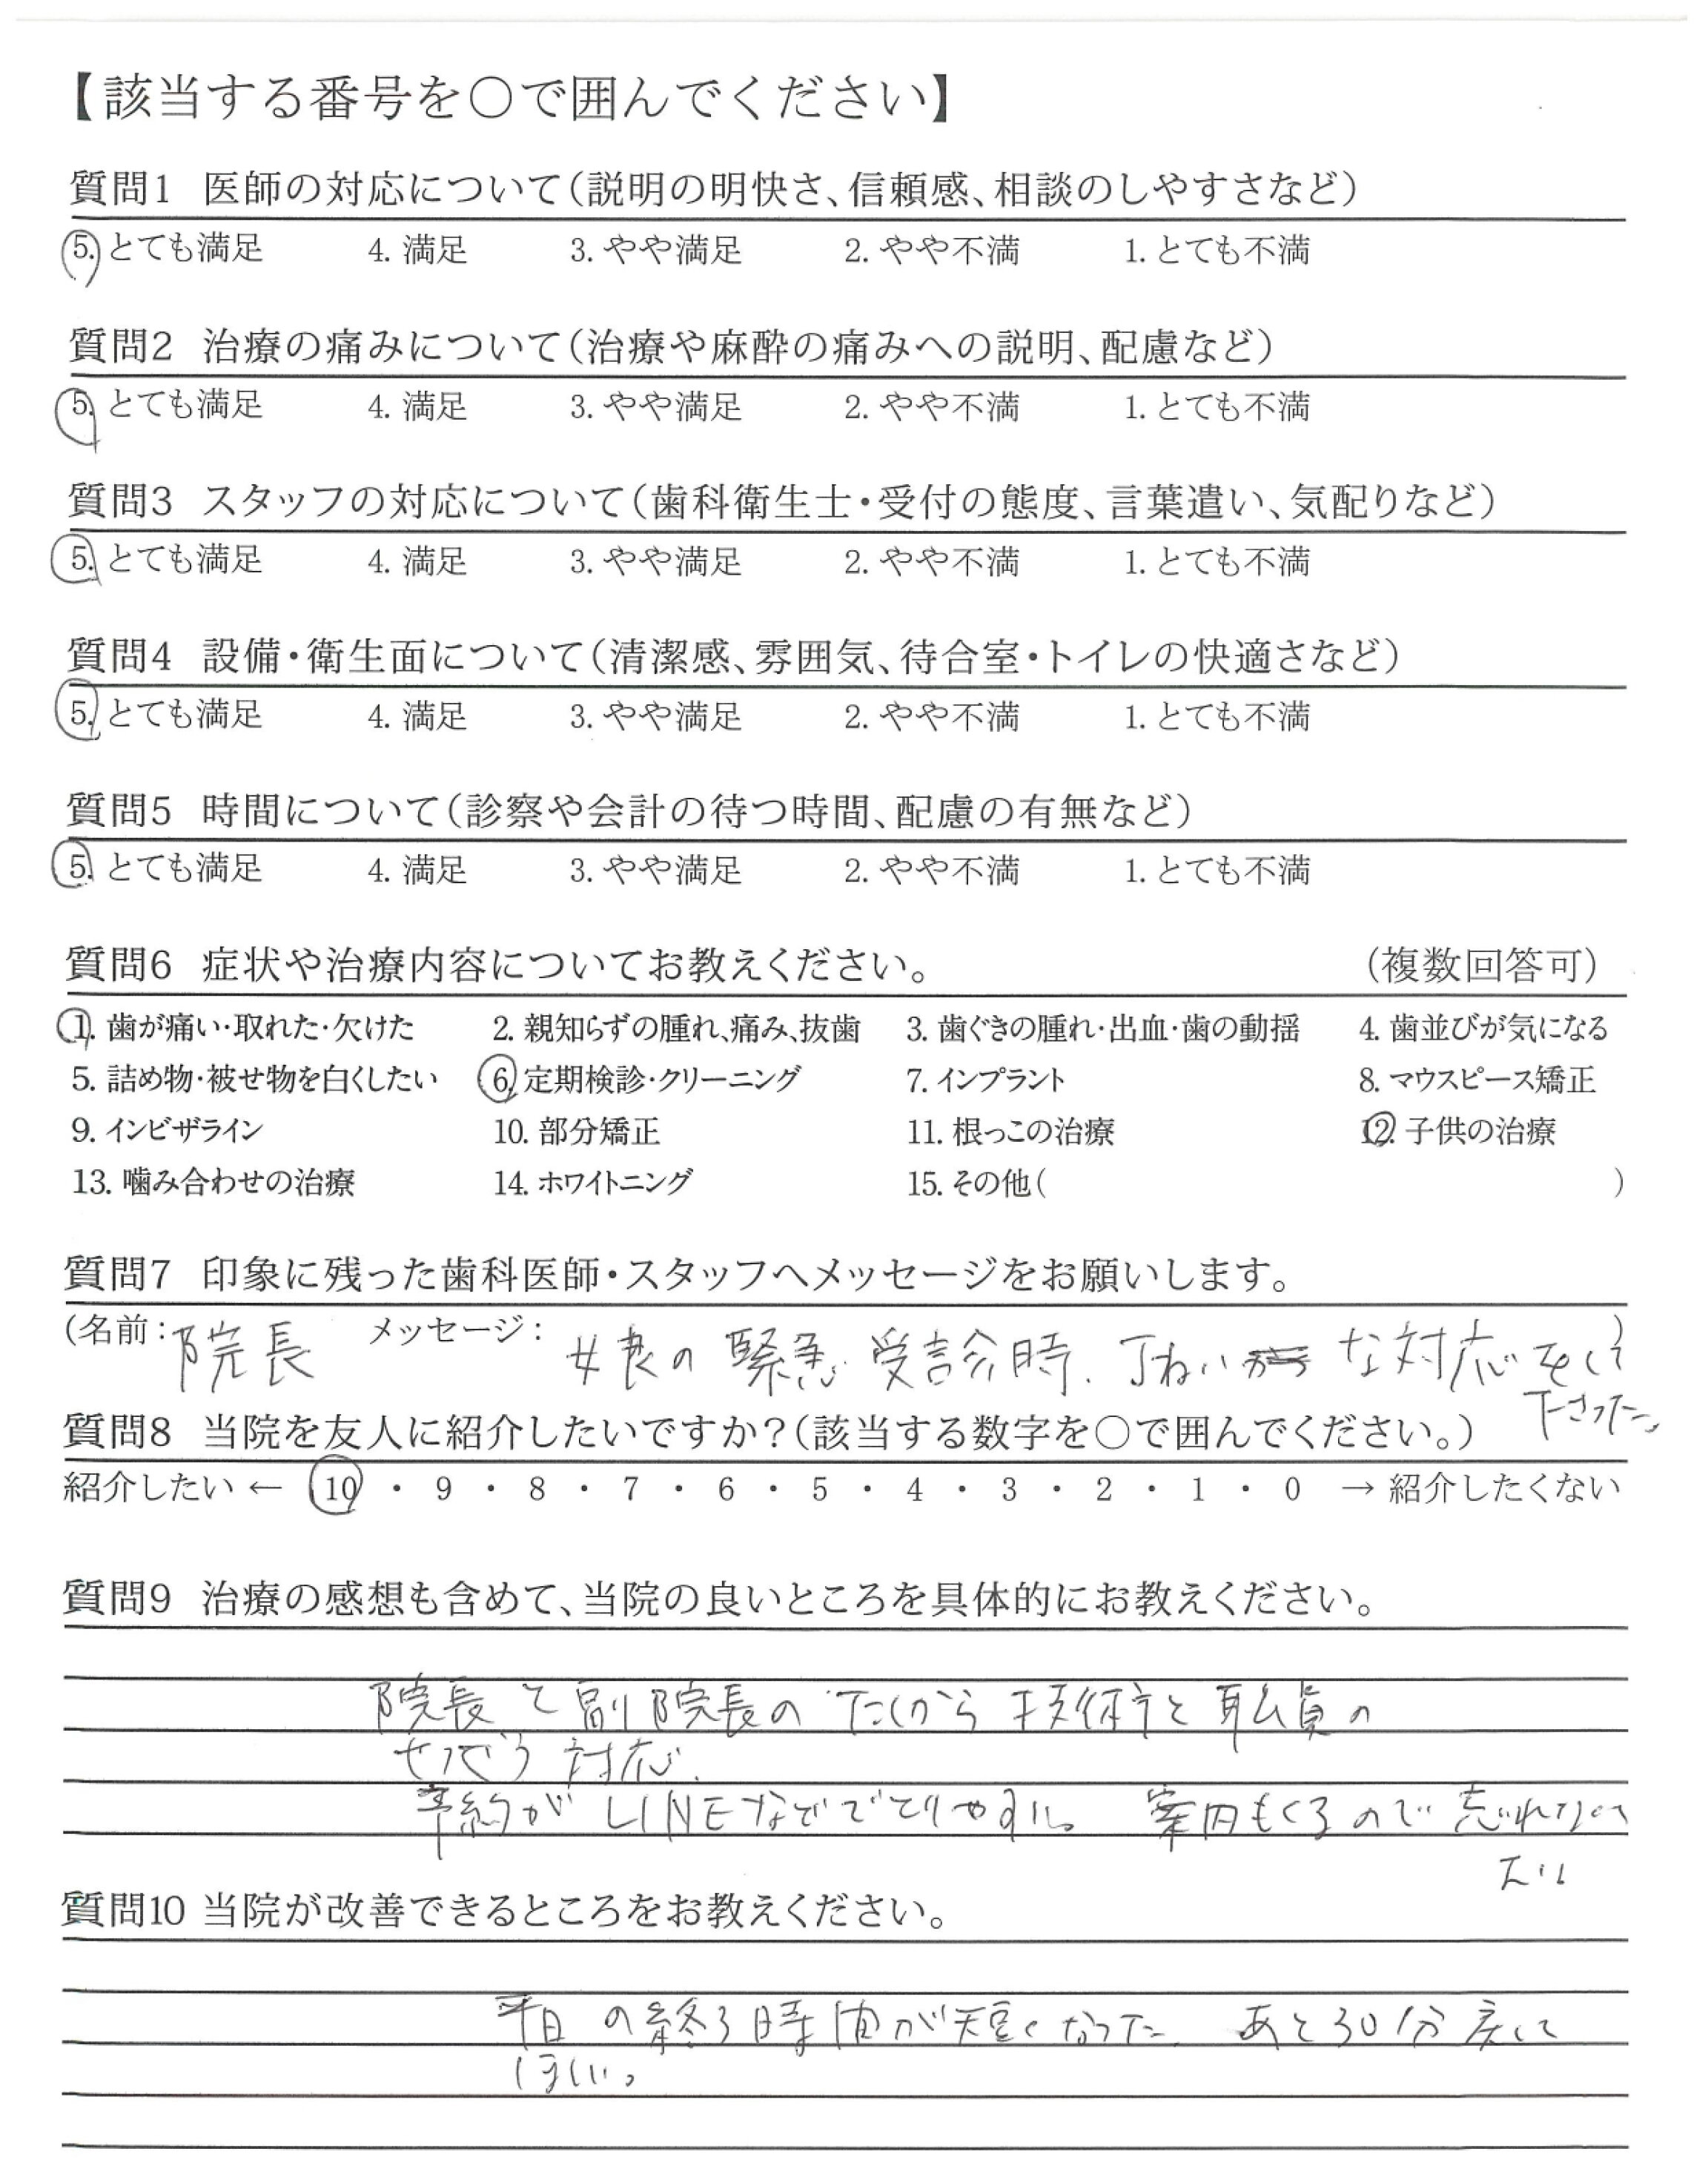 【該当する番号を○で囲んでください】
質問1 医師の対応について（説明の明快さ、信頼感、相談のしやすさなど）
5. とても満足 4. 満足 3. やや満足 2. やや不満 1. とても不満
質問2 治療の痛みについて（治療や麻酔の痛みへの説明、配慮など）
5. とても満足 4. 満足 3. やや満足 2. やや不満 1. とても不満
質問3 スタッフの対応について（歯科衛生士・受付の態度、言葉遣い、気配りなど）
5. とても満足 4. 満足 3. やや満足 2. やや不満 1. とても不満
質問4 設備・衛生面について（清潔感、雰囲気、待合室・トイレの快適さなど）
5. とても満足 4. 満足 3. やや満足 2. やや不満 1. とても不満
質問5 時間について（診察や会計の待つ時間、配慮の有無など）
5. とても満足 4. 満足 3. やや満足 2. やや不満 1. とても不満
質問6 症状や治療内容についてお教えください。 （複数回答可）
1. 歯が痛い・取れた・欠けた 2. 親知らずの腫れ、痛み、抜歯 3. 歯ぐきの腫れ・出血・歯の動揺 4. 歯並びが気になる
5. 詰め物・被せ物を白くしたい 6. 定期検診・クリーニング 7. インプラント 8. マウスピース矯正
9. インビザライン 10. 部分矯正 11. 根っこの治療 12. 子供の治療
13. 噛み合わせの治療 14. ホワイトニング 15. その他（ ）
質問7 印象に残った歯科医師・スタッフへメッセージをお願いします。
（名前：院長 メッセージ：娘の緊急受診時、丁ねいな対応をして）
下さった。
質問8 当院を友人に紹介したいですか？（該当する数字を○で囲んでください。）
紹介したい ← 10 ・ 9 ・ 8 ・ 7 ・ 6 ・ 5 ・ 4 ・ 3 ・ 2 ・ 1 ・ 0 → 紹介したくない
質問9 治療の感想も含めて、当院の良いところを具体的にお教えください。
院長と副院長のたしかな技術と職員の
対応.
予約がLINEなどでとりやすい。 案内もくるので忘れなくて
よい
質問10 当院が改善できるところをお教えください。
平日の終る時間が短くなった. あと30分戻して
ほしい。